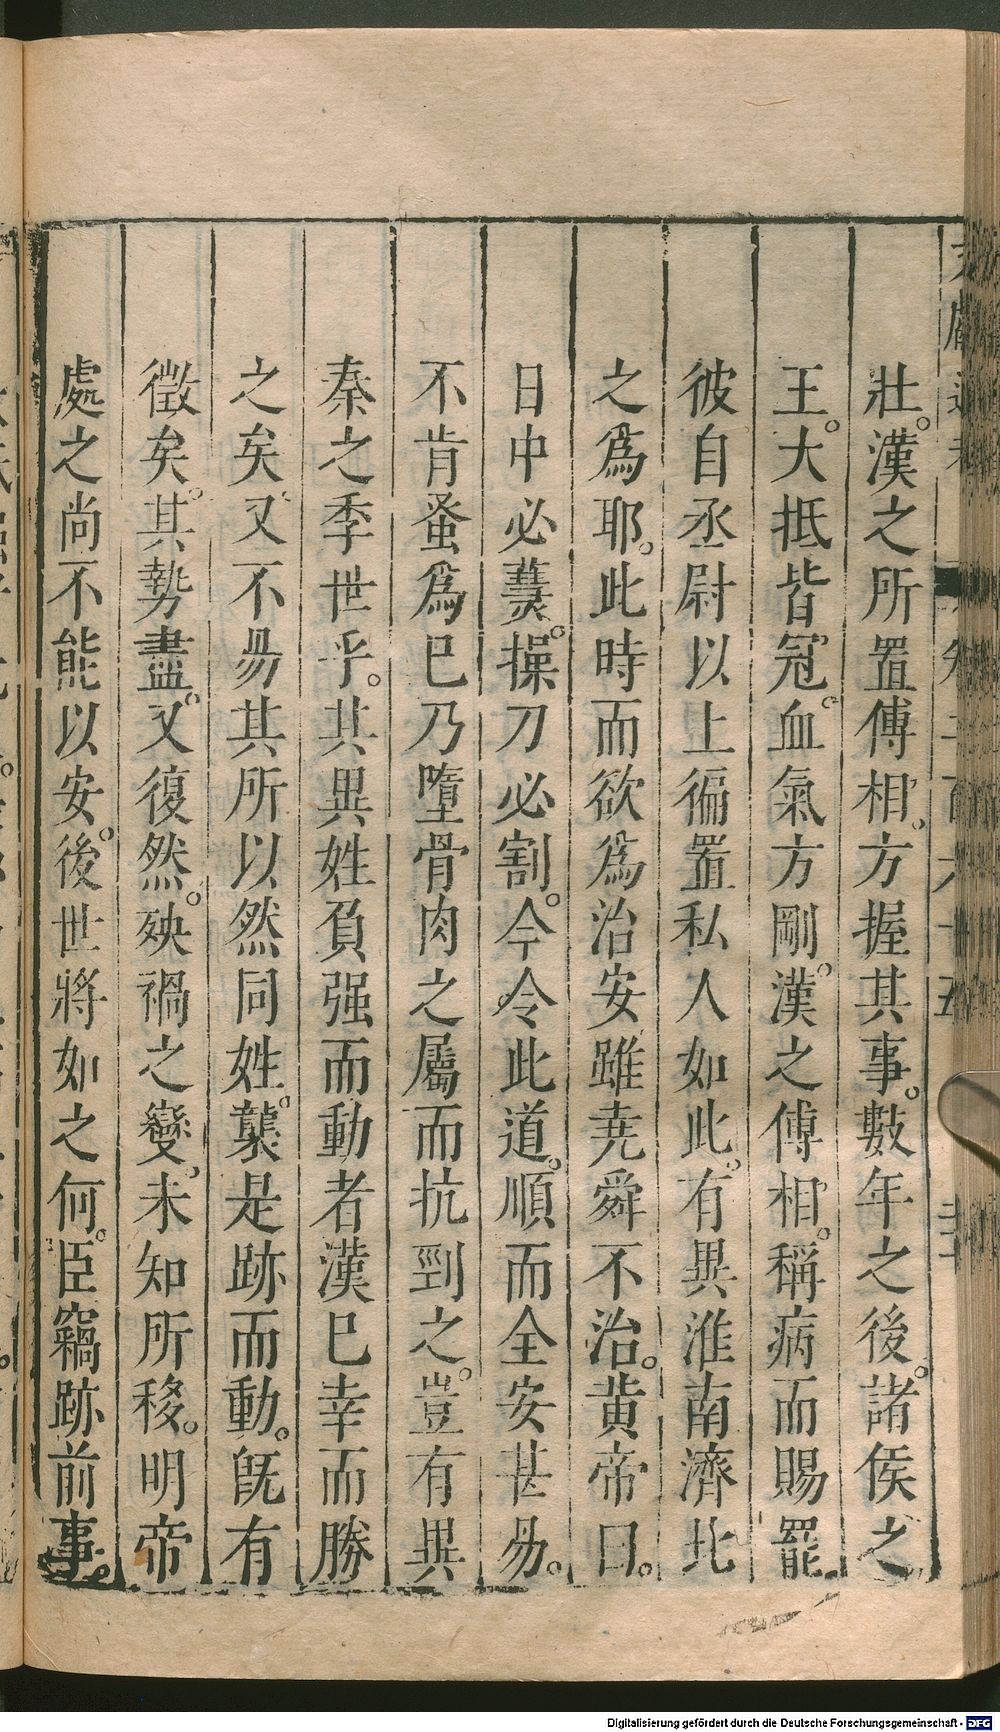 壯。漢之所置傅相。方握其事。數年之後。諸侯之
王。大抵皆冠。血氣方剛。漢之傅相。稱病而賜罷。
彼自丞尉以上徧置私人如此。有異淮南濟北
之爲耶。此時而欲爲治安雖堯舜不治。黄帝曰。
日中必㷭。操刀必割。今令此道。順而全安甚昜。
不肯蚤爲已乃墮骨肉之屬而抗剄之。豈有異
秦之季世乎。其異姓負强而動者漢已幸而勝
之矣。又不昜其所以然同姓。襲是跡而動。旣有
徵矣。其勢盡。又復然。殃禍之變。未知所移。明帝
處之尚不能以安。後世將如之何。臣竊跡前事。
Digitalisierung gefördert durch die Deutsche Forschungsgemeinschaft - DFG